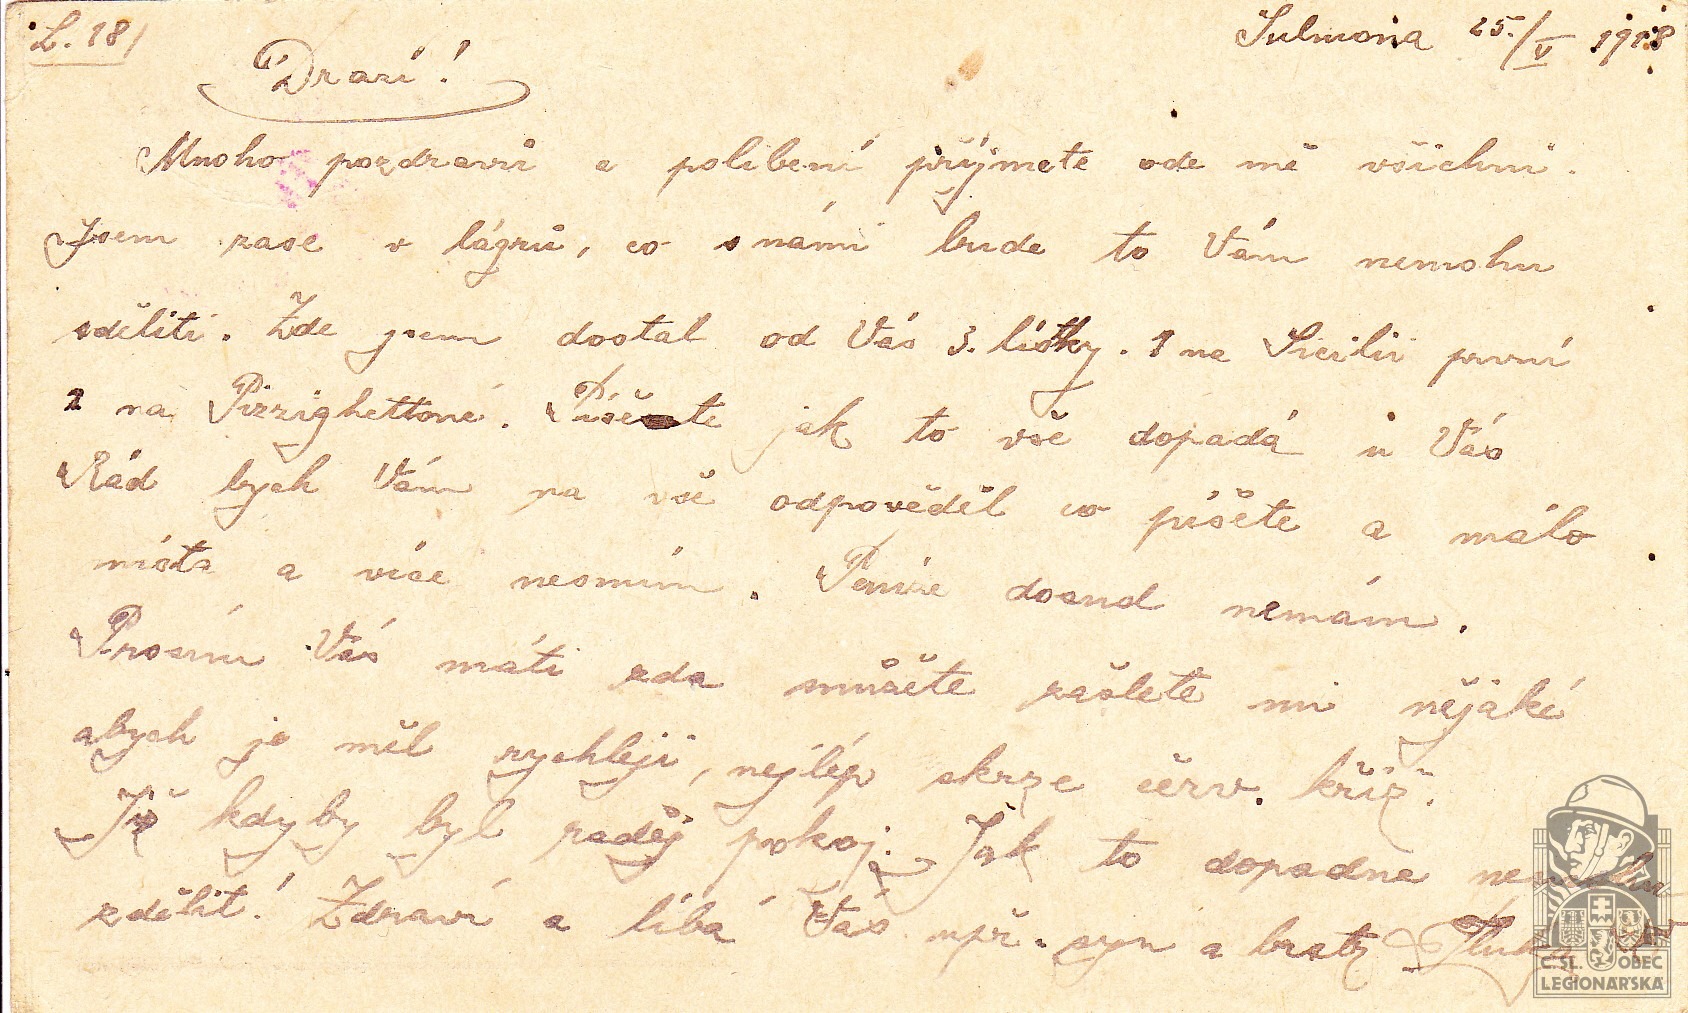 L. 18/
Sulmona 25./V 1918
Drazí!
Mnoho pozdravů a políbení přijmete ode mě všichni.
Jsem zase v lágrů, co s námi bude to Vám nemohu
sděliti. Zde jsem dostal od Vás 3. lístky. 1 na Sicilii první
2 na Pizzighettoné. Píšete jak to vše dopadá u Vás
Rád bych Vám na vše odpověděl co píšete a málo
místa a více nesmím. Peníze dosud nemám.
Prosím Vás máti zda můžete zašlete mi nějaké
abych je měl rychleji, nejlép skrze červ. kříž.
Již kdyby byl raděj pokoj. Jak to dopadne
zdělit! Zdraví a líbá Vás upř. syn a bratr
Č. SL. OBEC
LEGIONÁŘSKÁ